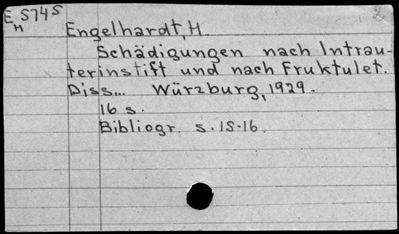 E S74S
n
Engelhardt, H.
Schädigungen nach Intrau-
terinstift und nach Fruktulet.
Diss... Würzburg, 1929.
16 s.
Bibliogr. s. 15-16.